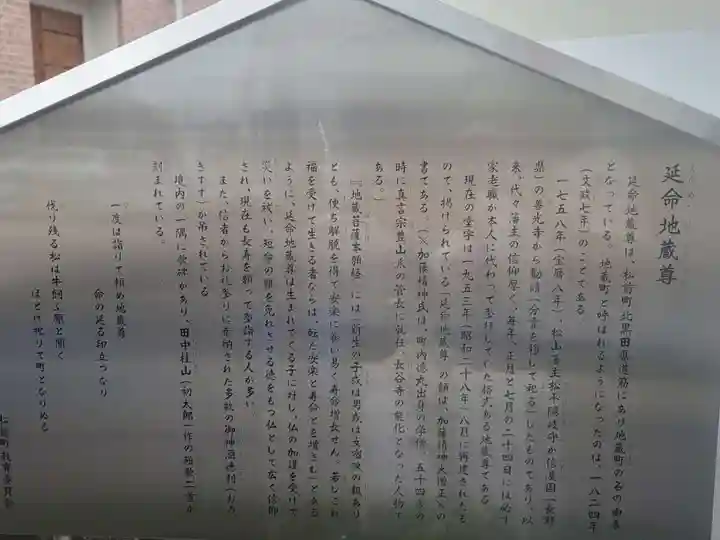 延命地蔵尊
延命地蔵尊は、松前町北黒田県道筋にあり地蔵町の名の由来
となっている。地蔵町と呼ばれるようになったのは、一八二四年
(文政七年)のことである。
一七五八年(宝暦八年)、松山藩主松平隠岐守が信濃国(長野
県)の善光寺から勧請(分霊を移して祀る)したものであり、以
来、代々藩主の信仰厚く、毎年、正月と七月の二十四日には必ず
家老職が本人に代わって参拝していた格式ある地蔵尊である
現在の堂宇は一九五三年(昭和二十八年)八月に再建されたも
ので、掲げられている「延命地蔵尊」の額は、加藤精神大僧正※の
書である。(※加藤精神氏は、町内徳丸出身の学僧。五十四歳の
時に真言宗豊山派の管長に就任、長谷寺の能化となった人物で
ある。)
『地蔵菩薩本願経』には「新生の子或は男或は女
とも、便ち解脱を得て安楽に養い易く寿命増長せん。若しされ
福を受けて生きる者ならば、転た安楽と寿命とを増さむ」とある
ように、延命地蔵尊は生まれてくる子に対し、仏の加護を受けて
災いを祓い、短命の難を免れさせる徳をもつ仏として広く信仰
され、現在も長寿を願って参詣する人が多い
また、信者からお礼参りに奉納された多数の御神酒徳利(おみ
きすず)が吊されている
境内の一隅に歌碑があり、田中桂山(初太郎)作の短歌二首が
刻まれている。
一度は詣りて頼め地蔵尊
命の延る印立つなり
伐り残る松は牛飼ふ原と聞く
ほとに祀りて町となりぬる
松前町教育委員会